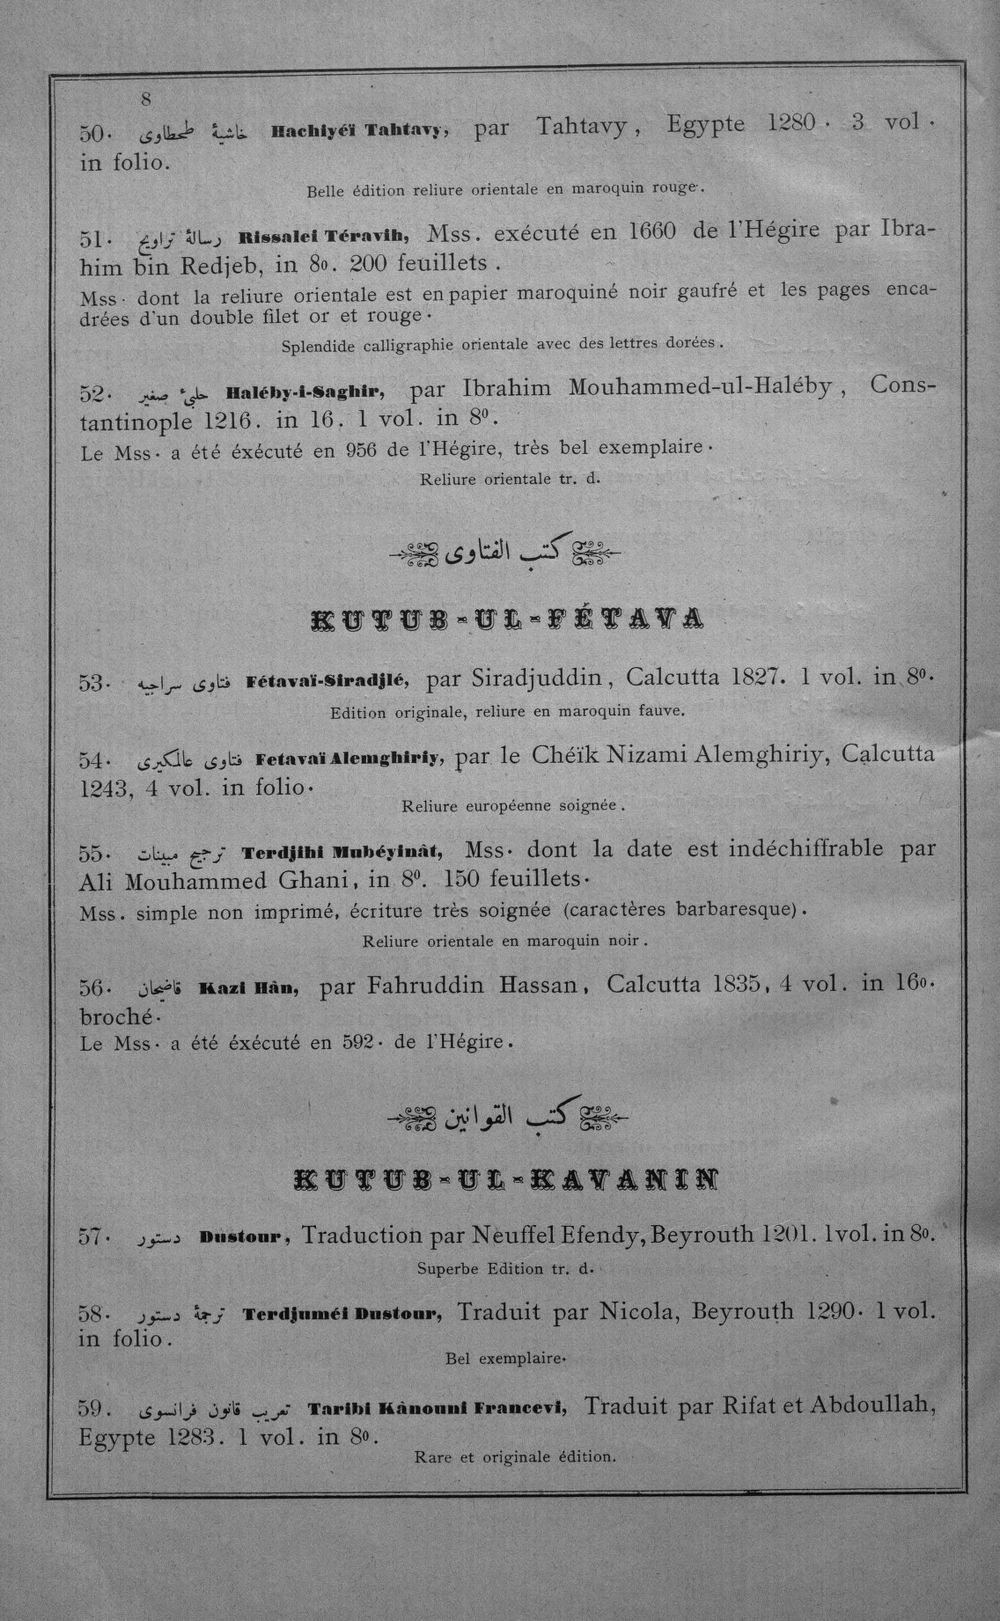 8
50. حاشیهٔ طحطاوی Hachiyéï Tahtavy, par Tahtavy, Egypte 1280. 3 vol.
in folio.
Belle édition reliure orientale en maroquin rouge.
51. رسالهٔ تراویح Rissalei Téravih, Mss. exécuté en 1660 de l'Hégire par Ibra-
him bin Redjeb, in 8o. 200 feuillets.
Mss. dont la reliure orientale est en papier maroquiné noir gaufré et les pages enca-
drées d'un double filet or et rouge.
Splendide calligraphie orientale avec des lettres dorées.
52. حلبیء صغیر Haléby-i-Saghir, par Ibrahim Mouhammed-ul-Haléby, Cons-
tantinople 1216. in 16. 1 vol. in 8o.
Le Mss. a été éxécuté en 956 de l'Hégire, très bel exemplaire.
Reliure orientale tr. d.
كتب الفتاوى
KUTUB-UL-FÉTAVA
53. فتاوی سراجیه Fétavaï-Siradjié, par Siradjuddin, Calcutta 1827. 1 vol. in 8o.
Edition originale, reliure en maroquin fauve.
54. فتاوی عالمکیری Fetavaï Alemghiriy, par le Chéïk Nizami Alemghiriy, Calcutta
1243, 4 vol. in folio.
Reliure européenne soignée.
55. ترجیح مبینات Terdjihi Mubéyinât, Mss. dont la date est indéchiffrable par
Ali Mouhammed Ghani, in 8o. 150 feuillets.
Mss. simple non imprimé, écriture très soignée (caractères barbaresque).
Reliure orientale en maroquin noir.
56. قاضیخان Kazi Hân, par Fahruddin Hassan, Calcutta 1835, 4 vol. in 16o.
broché.
Le Mss. a été éxécuté en 592. de l'Hégire.
كتب القوانين
KUTUB-UL-KAVANIN
57. دستور Dustour, Traduction par Neuffel Efendy, Beyrouth 1201. 1vol. in 8o.
Superbe Edition tr. d.
58. ترجمهٔ دستور Terdjuméi Dustour, Traduit par Nicola, Beyrouth 1290. 1 vol.
in folio.
Bel exemplaire.
59. تعریب قانون فرانسوی Taribi Kânouni Francevi, Traduit par Rifat et Abdoullah,
Egypte 1283. 1 vol. in 8o.
Rare et originale édition.